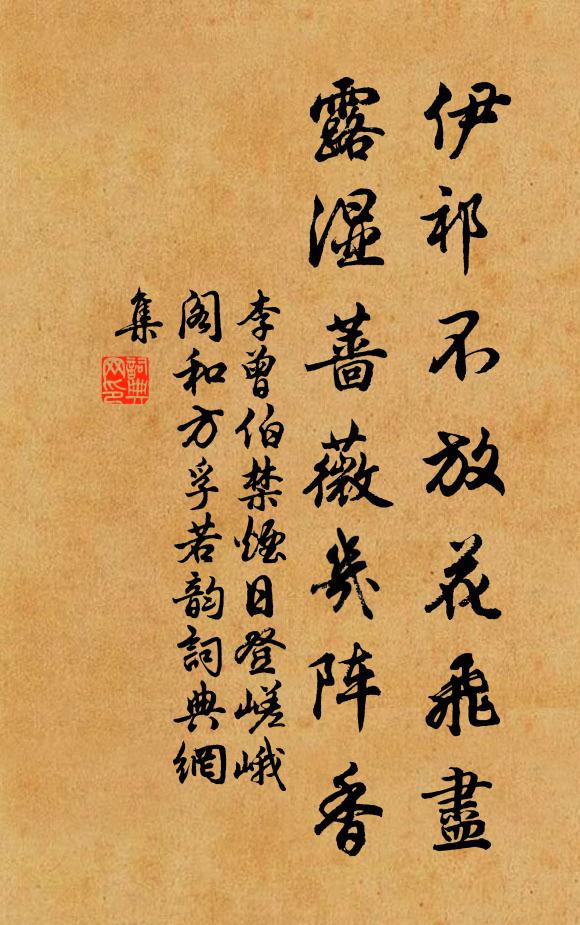 伊祁不放花飛盡
露濕薔薇幾陣香
李曾伯禁煙日登嵯峨
閣和方孚若韵詞典網
集
詞典网印